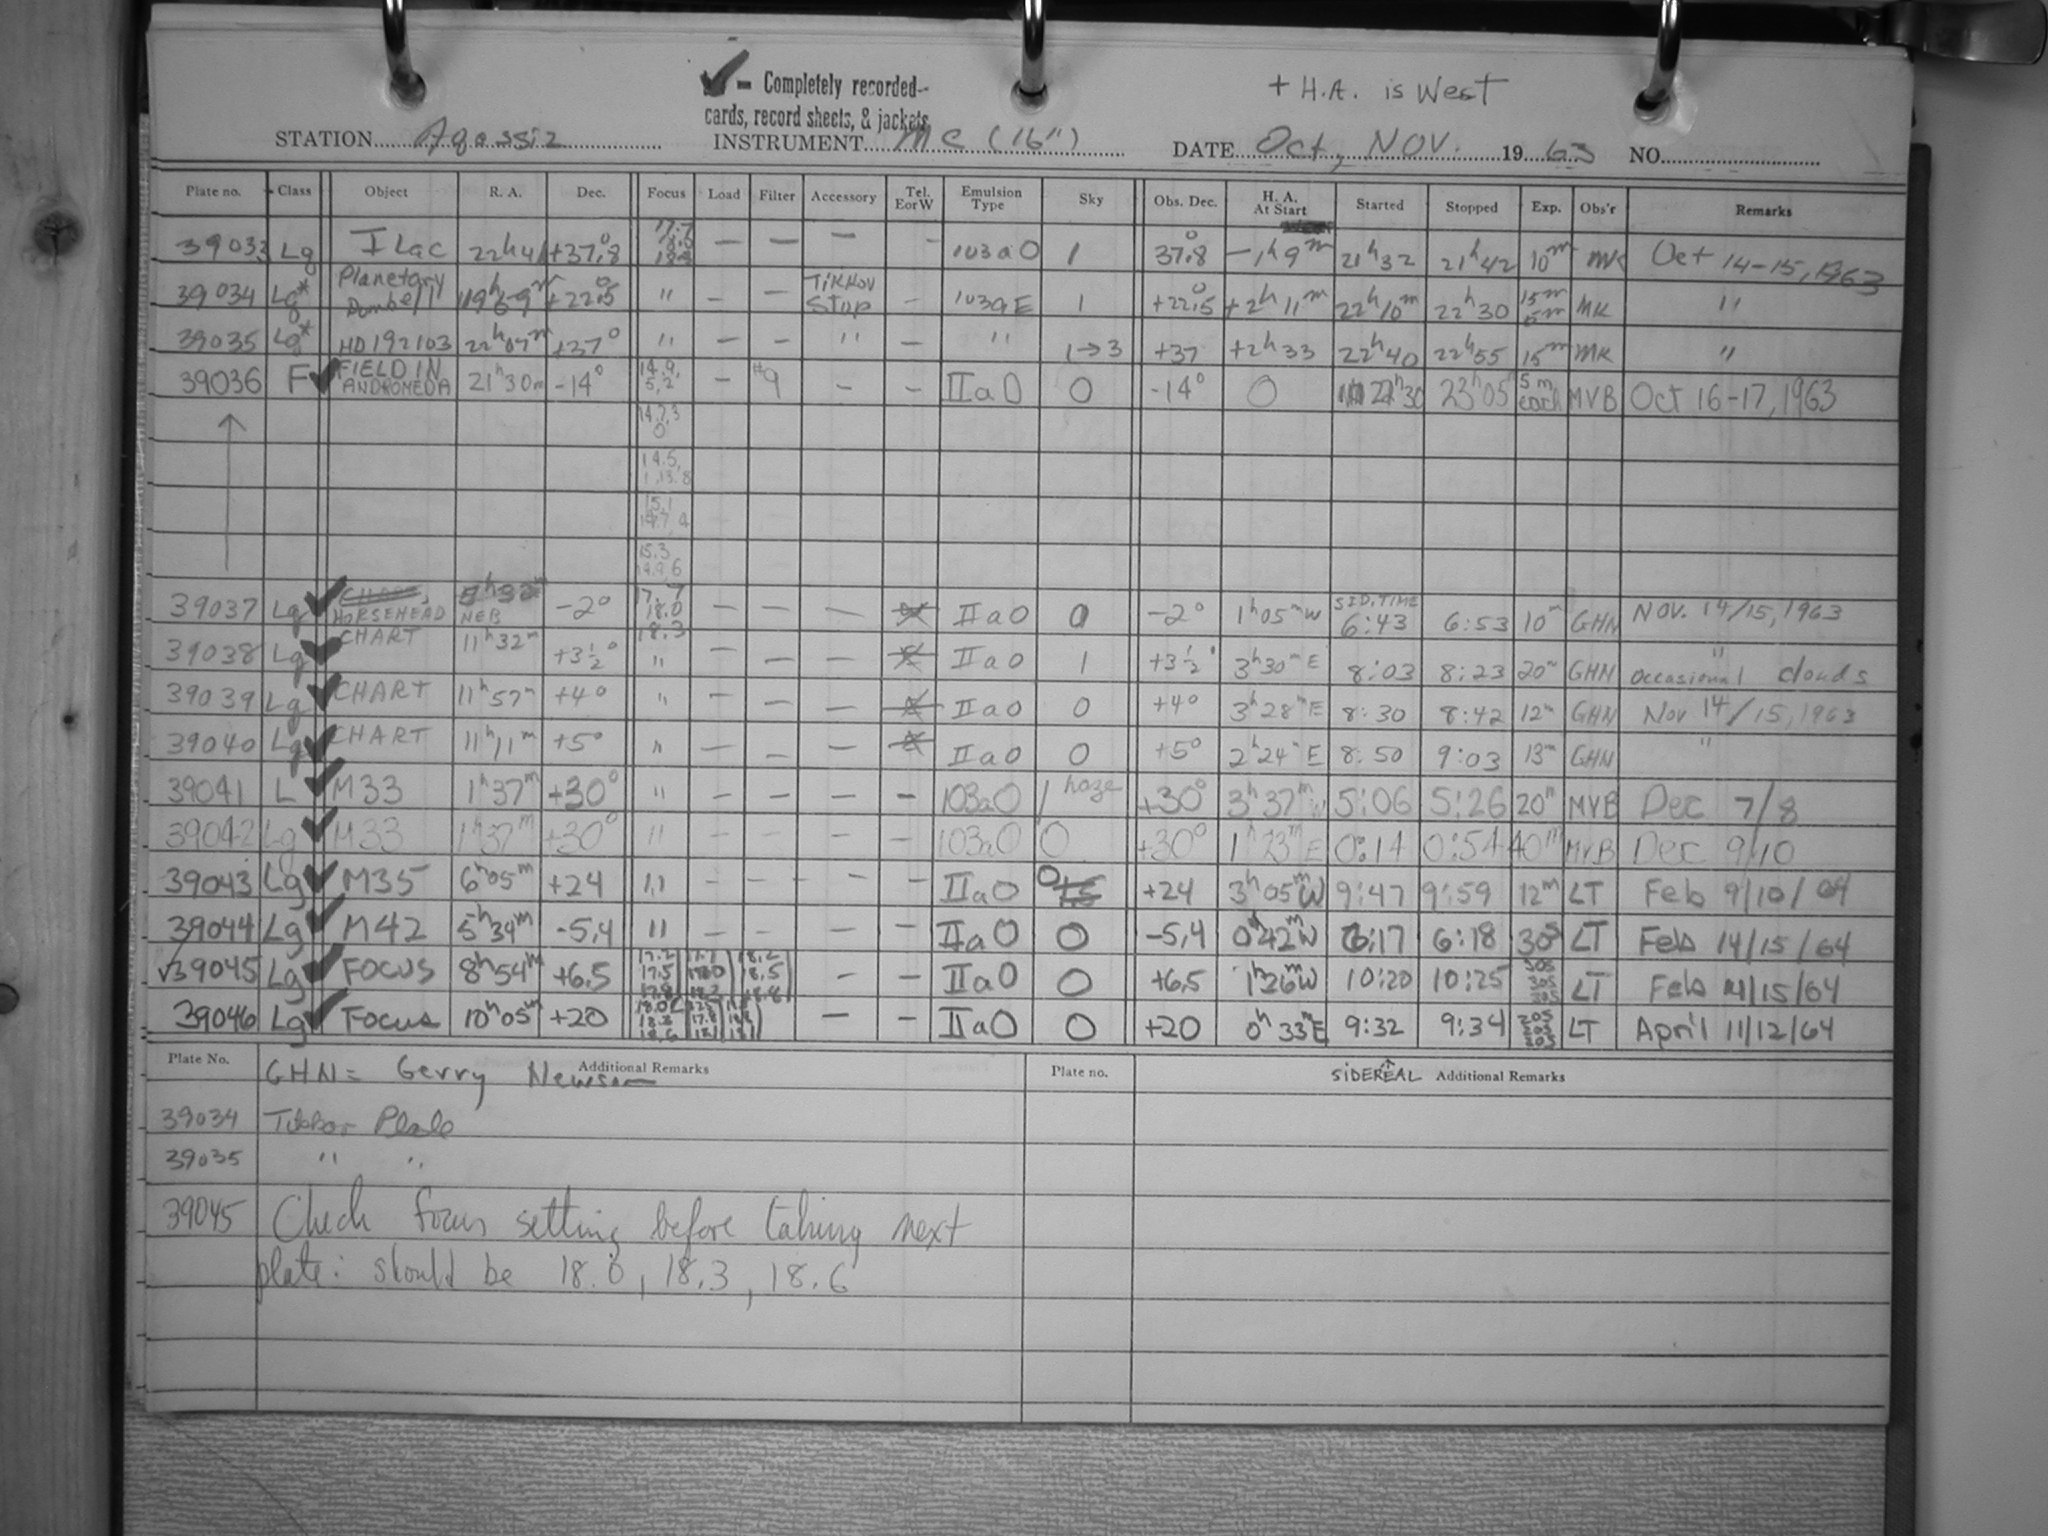 ✓ – Completely recorded– cards, record sheets, & jackets
+ H.A. is West
STATION Agassiz INSTRUMENT MC (16") DATE Oct, NOV. 19 63 NO.
Plate no. Class Object R. A. Dec. Focus Load Filter Accessory Tel. E or W Emulsion Type Sky Obs. Dec. H. A. At Start Started Stopped Exp. Obs'r Remarks
39033 Lg I Lac 22h41 +37.8° 17.7 – – – – 103aO 1 37.8° –1h9m 21h32 21h42 10m MK Oct 14-15, 1963
39034 Lg* Planetary Dumbell +22.5° " – – Tikhov Stop – 103aE 1 +22.5° +2h11m 22h10m 22h30 15m 5m MK "
39035 Lg* HD192103 22h07m +37° " – – " – " 1→3 +37 +2h33 22h40 22h55 15m MK "
39036 F ✓ FIELD IN ANDROMEDA 21h30m -14° 14.9, 5,2 – #9 – – IIaO 0 -14° 0 22h30 23h05 5m each MVB Oct 16-17, 1963
14.7,3 0
14.5, 1,13.8
15.1 14.7,4
15.3 14.9,6
39037 Lg ✓ HORSEHEAD NEB 5h32m -2° 17.7 18.0 18.3 – – – IIaO 0 -2° 1h05m W SID. TIME 6:43 6:53 10m GHN NOV. 14/15, 1963
39038 Lg ✓ CHART 11h32m +3½° " – – – IIaO 1 +3½° 3h30m E 8:03 8:23 20m GHN " occasional clouds
39039 Lg ✓ CHART 11h57m +4° " – IIaO 0 +4° 3h28m E 8:30 8:42 12m GHN Nov 14/15, 1963
39040 Lg ✓ CHART 11h11m +5° " – – – IIaO 0 +5° 2h24m E 8:50 9:03 13m GHN "
39041 L ✓ M33 1h37m +30° " – – – – 103aO 1 haze +30° 3h37m W 5:06 5:26 20m MVB Dec 7/8
39042 Lg ✓ M33 1h37m +30° " – – – – 103aO 0 +30° 1h23m E 0:14 0:54 40m MVB Dec 9/10
39043 Lg ✓ M35 6h05m +24 " – – – – IIaO 0 +24 3h05m W 9:47 9:59 12m LT Feb 9/10/64
39044 Lg ✓ M42 5h34m -5,4 " – – – – IIaO 0 -5,4 0h42m W 6:17 6:18 30s LT Feb 14/15/64
✓39045 Lg ✓ FOCUS 8h54m +6,5 17.2 17.5 17.8 18.2 18.5 18.8 – – IIaO 0 +6,5 1h26m W 10:20 10:25 30s 30s 30s LT Feb 14/15/64
39046 Lg ✓ FOCUS 10h05m +20 18.0 18.3 18.6 – – IIaO 0 +20 0h33m E 9:32 9:34 20s 20s 20s LT April 11/12/64
Plate No. Additional Remarks Plate no. SIDEREAL Additional Remarks
GHN = Gerry Newsom
39034 Tikhov Plate
39035 " "
39045 Check focus setting before taking next
plate: should be 18.0, 18.3, 18.6